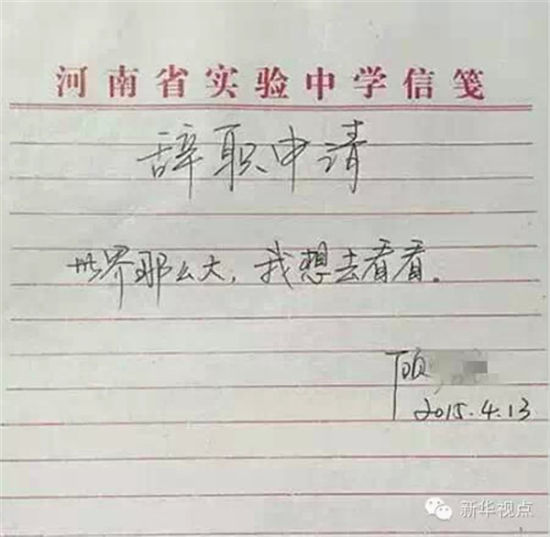 河南省实验中学信笺
辞职申请
世界那么大，我想去看看。
顾
2015.4.13
新华视点